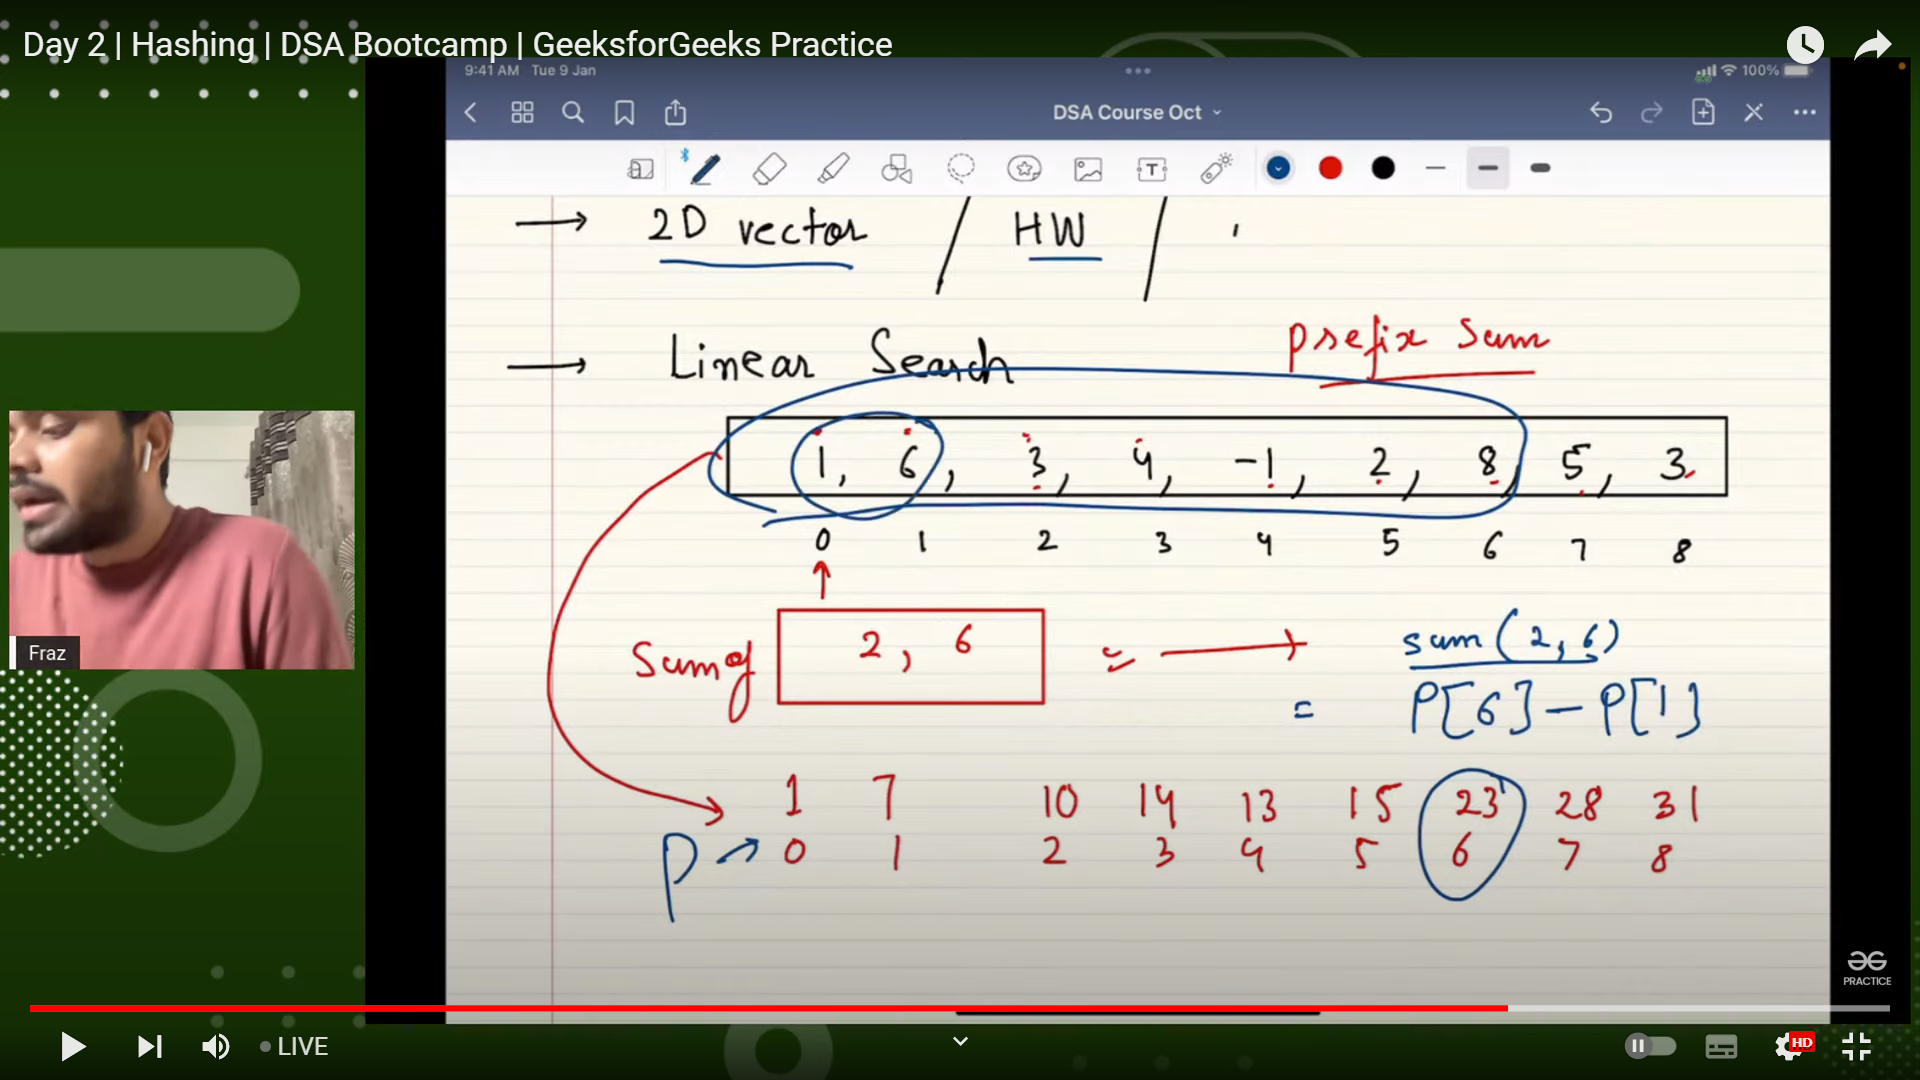 Day 2 | Hashing | DSA Bootcamp | GeeksforGeeks Practice
9:41 AM Tue 9 Jan
100%
DSA Course Oct
T
→ 2D vector / HW /
→ Linear Search
prefix Sum
1, 6, 3, 4, -1, 2, 8, 5, 3
0 1 2 3 4 5 6 7 8
Sum of 2, 6 = → sum(2, 6)
= P[6] - P[1]
1 7 10 14 13 15 23 28 31
P → 0 1 2 3 4 5 6 7 8
Fraz
PRACTICE
LIVE
HD